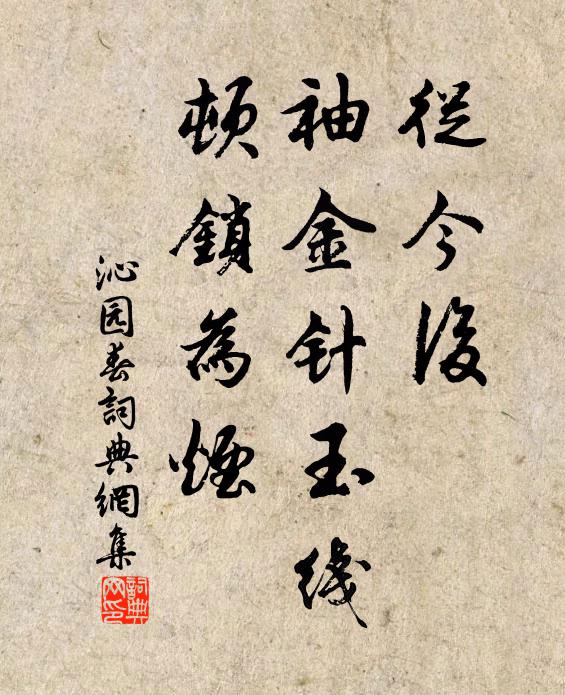 從今後
袖金针玉线
頓鎖為煙
沁园春詞典網集
詞典网印